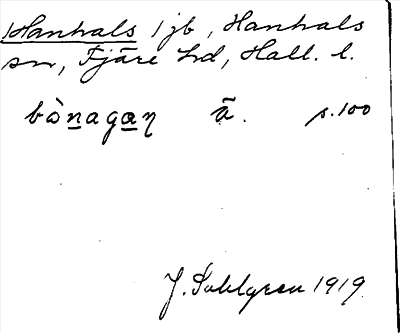 Hanhals 1 jb, Hanhals
sn, Fjäre hd, Hall. l.
bònagaŋ ā. s.100
J. Sahlgren 1919